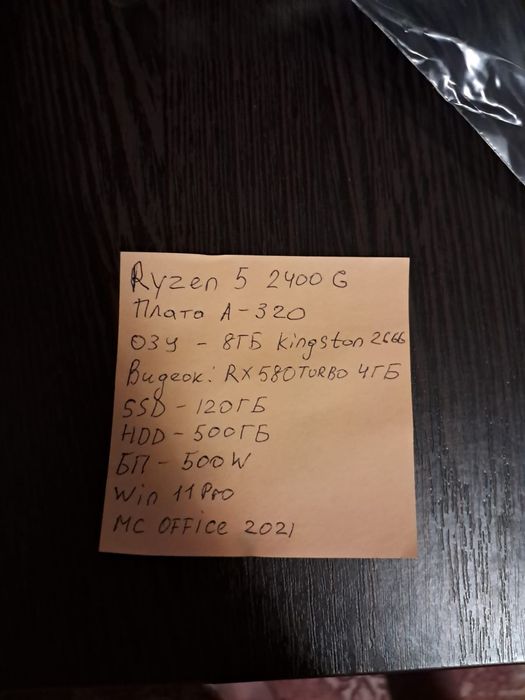 Ryzen 5 2400 G
Плата A-320
ОЗУ - 8ГБ Kingston 2666
Видеок: RX 580 TURBO 4ГБ
SSD - 120ГБ
HDD - 500ГБ
БП - 500W
Win 11 Pro
MC OFFice 2021